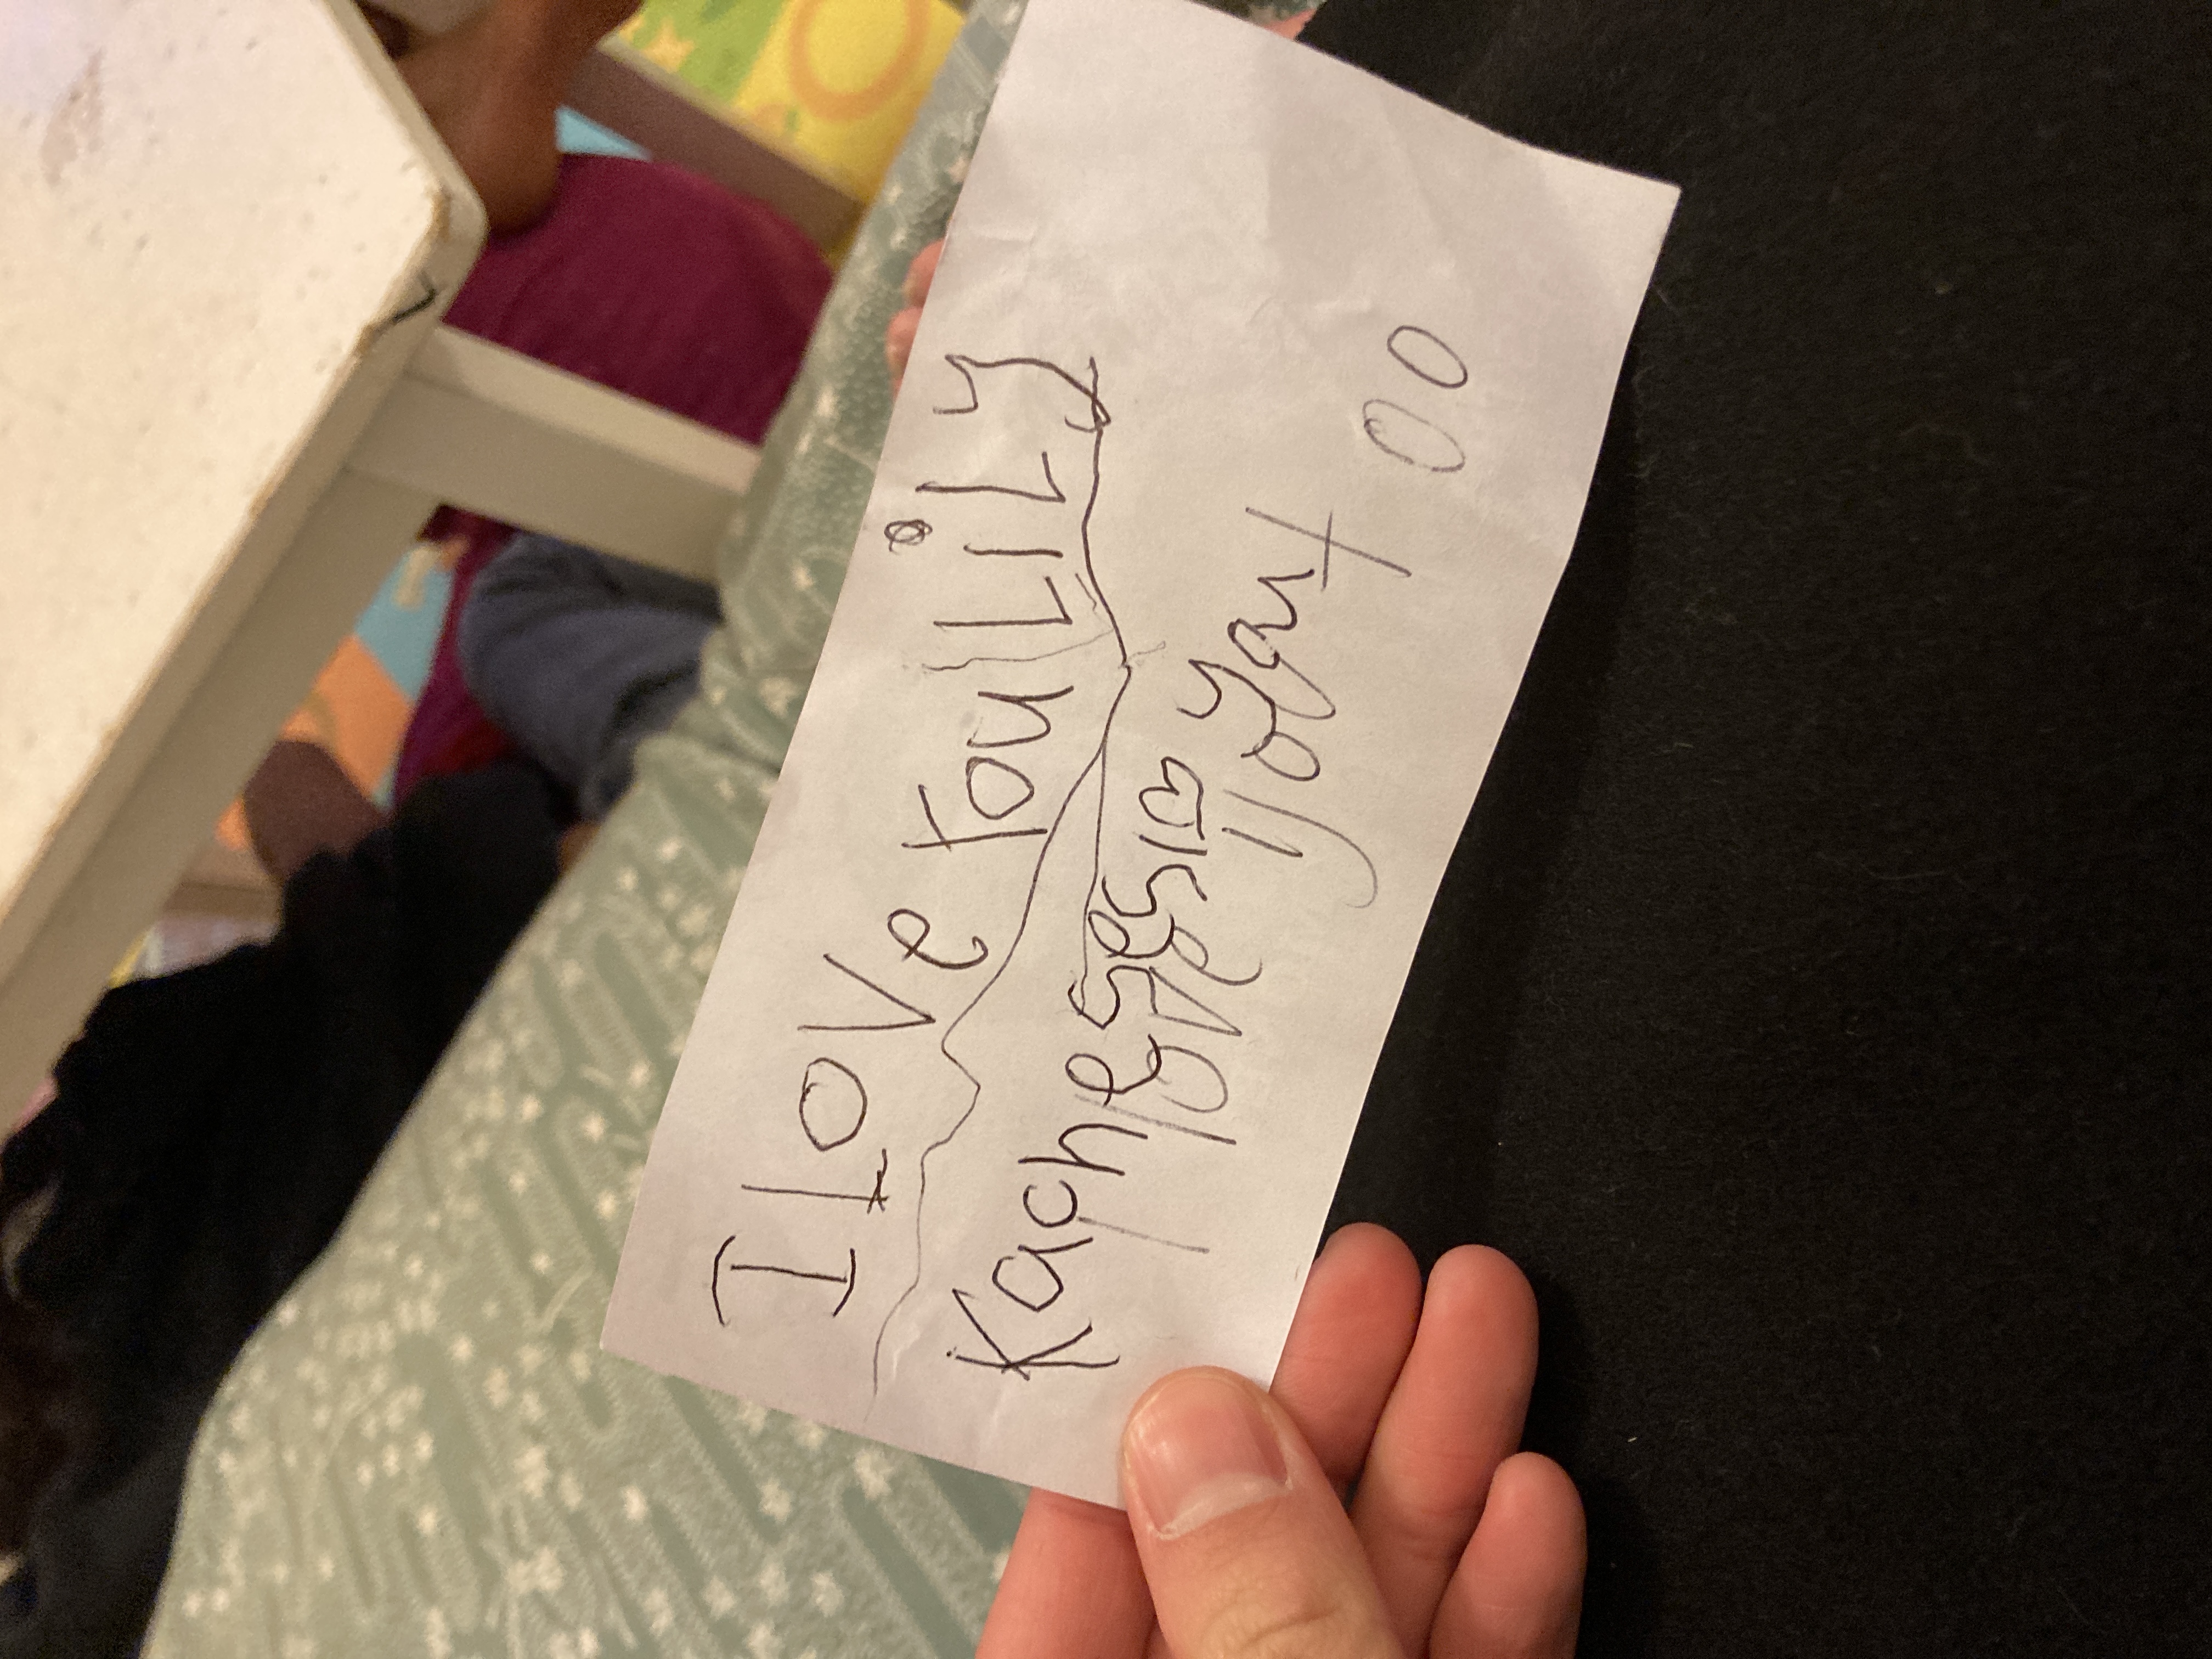 I Love You LiLy
Kachesesi♡ you
I love you too